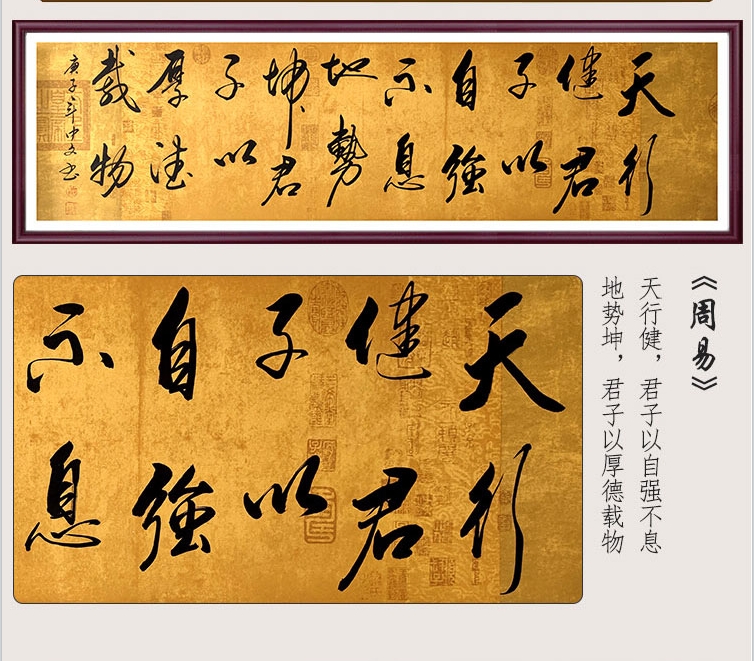 天行
健君
子以
自強
不息
地勢
坤君
子以
厚德
载物
庚子年中文书
天行
健君
子以
自強
不息
《周易》
天行健，君子以自强不息
地势坤，君子以厚德载物